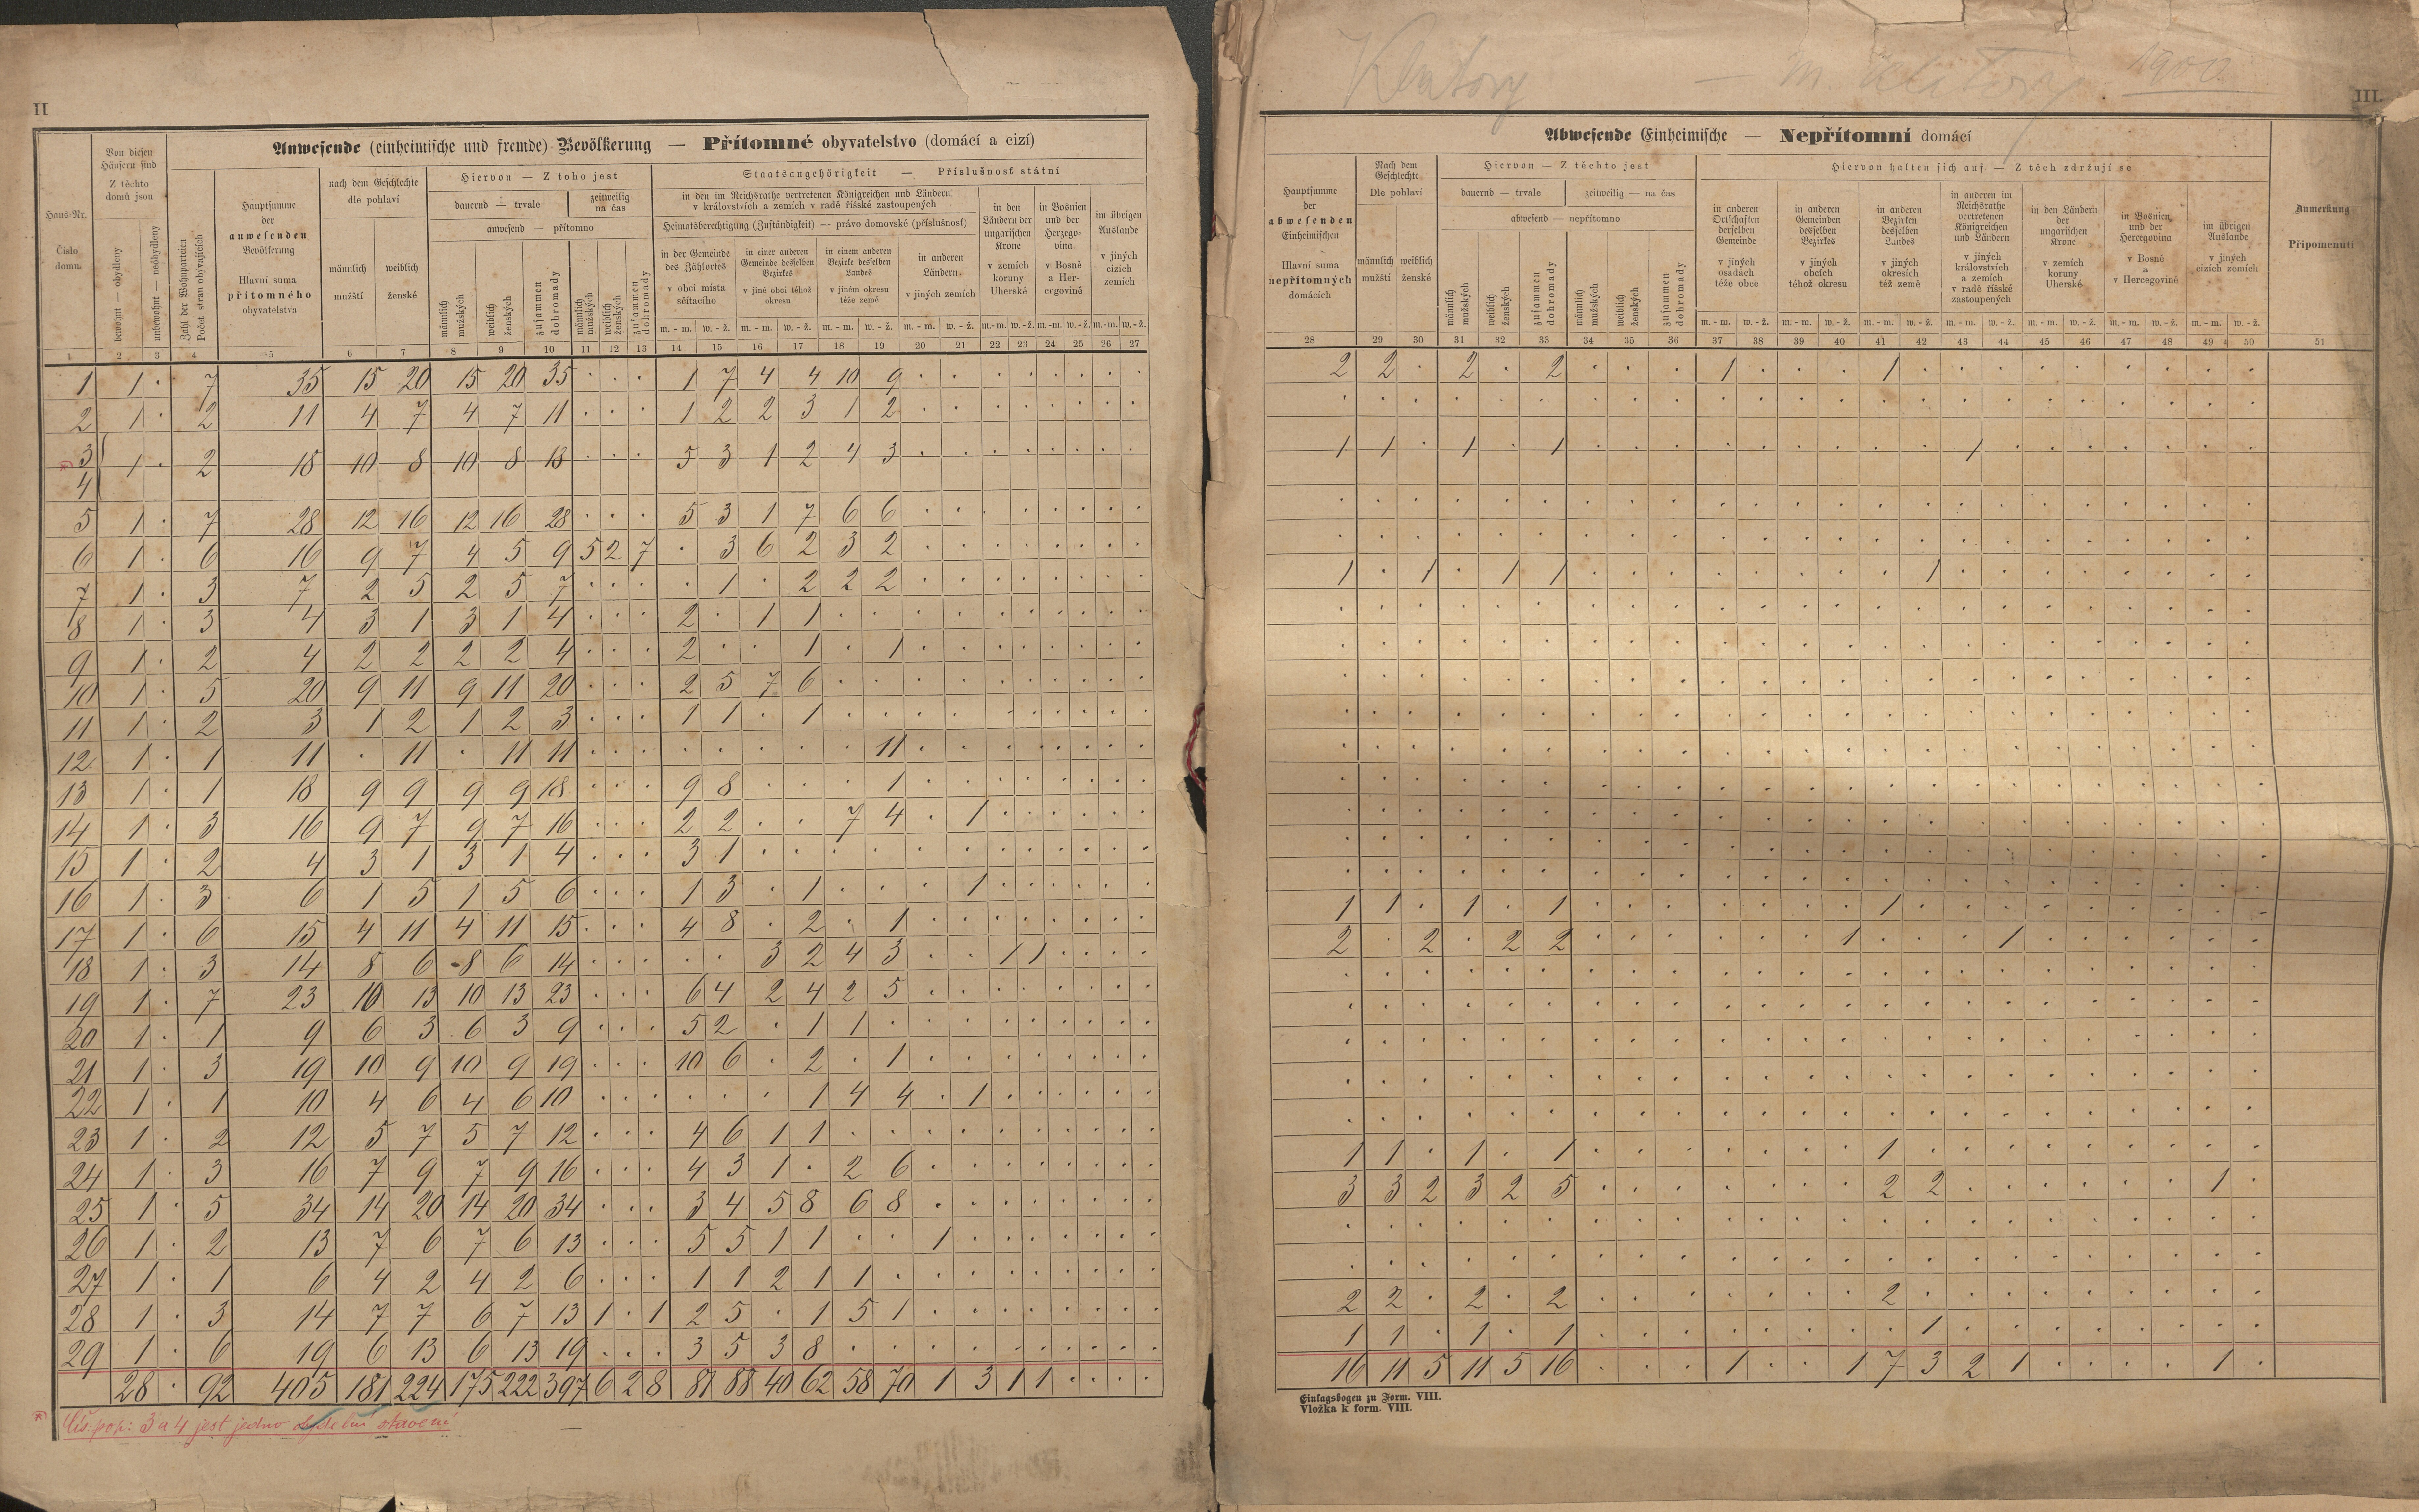 II
Anwesende (einheimische und fremde) Bevölkerung — Přítomné obyvatelstvo (domácí a cizí)
Haus-Nr. Číslo domu
Von diesen Häusern sind Z těchto domů jsou
bewohnt — obydleny
unbewohnt — neobydleny
Zahl der Wohnparteien Počet stran obývajících
Hauptsumme der anwesenden Bevölkerung Hlavní suma přítomného obyvatelstva
nach dem Geschlechte dle pohlaví
männlich mužští
weiblich ženské
Hiervon — Z toho jest
dauernd — trvale
zeitweilig na čas
anwesend — přítomno
männlich mužských
weiblich ženských
zusammen dohromady
männlich mužských
weiblich ženských
zusammen dohromady
Staatsangehörigkeit — Příslušnost státní
in den im Reichsrathe vertretenen Königreichen und Ländern
v královstvích a zemích v radě říšské zastoupených
Heimatsberechtigung (Zuständigkeit) — právo domovské (příslušnost)
in der Gemeinde des Zählortes v obci místa sčítacího
in einer anderen Gemeinde desselben Bezirkes v jiné obci téhož okresu
in einem anderen Bezirke desselben Landes v jiném okresu téže země
in anderen Ländern v jiných zemích
in den Ländern der ungarischen Krone v zemích koruny Uherské
in Bosnien und der Herzegovina v Bosně a Hercegovině
im übrigen Auslande v jiných cizích zemích
m. - m. w. - ž. m. - m. w. - ž. m. - m. w. - ž. m. - m. w. - ž. m.- m. w. - ž. m.- m. w. - ž. m.- m. w. - ž.
1 2 3 4 5 6 7 8 9 10 11 12 13 14 15 16 17 18 19 20 21 22 23 24 25 26 27
1 1 · 7 35 15 20 15 20 35 · · · 1 7 4 4 10 9 · · · · · · · ·
2 1 · 2 11 4 7 4 7 11 · · · 1 2 2 3 1 2 · · · · · · · ·
3 4 1 · 2 18 10 8 10 8 18 · · · 5 3 1 2 4 3 · · · · · · · ·
5 1 · 7 28 12 16 12 16 28 · · · 5 3 1 7 6 6 · · · · · · · ·
6 1 · 6 16 9 7 4 5 9 5 2 7 · 3 6 2 3 2 · · · · · · · ·
7 1 · 3 7 2 5 2 5 7 · · · · 1 · 2 2 2 · · · · · · · ·
8 1 · 3 4 3 1 3 1 4 · · · 2 · 1 1 · · · · · · · · · ·
9 1 · 2 4 2 2 2 2 4 · · · 2 · · 1 · 1 · · · · · · · ·
10 1 · 5 20 9 11 9 11 20 · · · 2 5 7 6 · · · · · · · · · ·
11 1 · 2 3 1 2 1 2 3 · · · 1 1 · 1 · · · · · · · · · ·
12 1 · 1 11 · 11 · 11 11 · · · · · · · · 11 · · · · · · · ·
13 1 · 1 18 9 9 9 9 18 · · · 9 8 · · · 1 · · · · · · · ·
14 1 · 3 16 9 7 9 7 16 · · · 2 2 · · 7 4 · 1 · · · · · ·
15 1 · 2 4 3 1 3 1 4 · · · 3 1 · · · · · · · · · · · ·
16 1 · 3 6 1 5 1 5 6 · · · 1 3 · 1 · · · 1 · · · · · ·
17 1 · 6 15 4 11 4 11 15 · · · 4 8 · 2 · 1 · · · · · · · ·
18 1 · 3 14 8 6 8 6 14 · · · · · 3 2 4 3 · · 1 1 · · · ·
19 1 · 7 23 10 13 10 13 23 · · · 6 4 2 4 2 5 · · · · · · · ·
20 1 · 1 9 6 3 6 3 9 · · · 5 2 · 1 1 · · · · · · · · ·
21 1 · 3 19 10 9 10 9 19 · · · 10 6 · 2 · 1 · · · · · · · ·
22 1 · 1 10 4 6 4 6 10 · · · · · · 1 4 4 · 1 · · · · · ·
23 1 · 2 12 5 7 5 7 12 · · · 4 6 1 1 · · · · · · · · · ·
24 1 · 3 16 7 9 7 9 16 · · · 4 3 1 · 2 6 · · · · · · · ·
25 1 · 5 34 14 20 14 20 34 · · · 3 4 5 8 6 8 · · · · · · · ·
26 1 · 2 13 7 6 7 6 13 · · · 5 5 1 1 · · 1 · · · · · · ·
27 1 · 1 6 4 2 4 2 6 · · · 1 1 2 1 1 · · · · · · · · ·
28 1 · 3 14 7 7 6 7 13 1 · 1 2 5 · 1 5 1 · · · · · · · ·
29 1 · 6 19 6 13 6 13 19 · · · 3 5 3 8 · · · · · · · · · ·
28 · 92 405 181 224 175 222 397 6 2 8 81 88 40 62 58 70 1 3 1 1 · · · ·
*) Čís. pop: 3 a 4 jest jedno obydelní stavení
Klatovy — m. Klatovy 1900
III.
Abwesende Einheimische — Nepřítomní domácí
Hauptsumme der abwesenden Einheimischen Hlavní suma nepřítomných domácích
Nach dem Geschlechte Dle pohlaví
männlich mužští
weiblich ženské
Hiervon — Z těchto jest
dauernd — trvale
zeitweilig — na čas
abwesend — nepřítomno
männlich mužských
weiblich ženských
zusammen dohromady
männlich mužských
weiblich ženských
zusammen dohromady
Hiervon halten sich auf — Z těch zdržují se
in anderen Ortschaften derselben Gemeinde v jiných osadách téže obce
in anderen Gemeinden desselben Bezirkes v jiných obcích téhož okresu
in anderen Bezirken desselben Landes v jiných okresích též země
in anderen im Reichsrathe vertretenen Königreichen und Ländern v jiných královstvích a zemích v radě říšské zastoupených
in den Ländern der ungarischen Krone v zemích koruny Uherské
in Bosnien und der Hercegovina v Bosně a Hercegovině
im übrigen Auslande v jiných cizích zemích
Anmerkung Připomenutí
m. - m. w. - ž. m. - m. w. - ž. m. - m. w. - ž. m. - m. w. - ž. m. - m. w. - ž. m. - m. w. - ž. m. - m. w. - ž.
28 29 30 31 32 33 34 35 36 37 38 39 40 41 42 43 44 45 46 47 48 49 50 51
2 2 · 2 · 2 · · · 1 · · · 1 · · · · · · · · ·
1 1 · 1 · 1 · · · · · · · · · 1 · · · · · · ·
1 · 1 · 1 1 · · · · · · · · 1 · · · · · · · ·
1 1 · 1 · 1 · · · · · · · 1 · · · · · · · · ·
2 · 2 · 2 2 · · · · · · 1 · · · 1 · · · · · ·
1 1 · 1 · 1 · · · · · · · 1 · · · · · · · · ·
3 3 2 3 2 5 · · · · · · · 2 2 · · · · · · 1 ·
2 2 · 2 · 2 · · · · · · · 2 · · · · · · · · ·
1 1 · 1 · 1 · · · · · · · · 1 · · · · · · · ·
16 11 5 11 5 16 · · · 1 · · 1 7 3 2 1 · · · · 1 ·
Einlagsbogen zu Form. VIII.
Vložka k form. VIII.